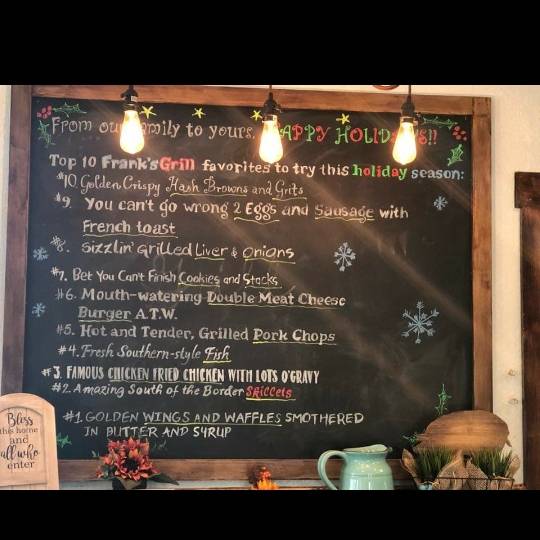 From our family to yours, HAPPY HOLIDAYS!!
Top 10 Frank's Grill favorites to try this holiday season:
#10. Golden, Crispy Hash Browns and Grits
#9. You can't go wrong 2 Eggs and Sausage with
French toast
#8. Sizzlin' Grilled Liver & Onions
#7. Bet You Can't Finish Cookies and Stacks
#6. Mouth-watering Double Meat Cheese
Burger A.T.W.
#5. Hot and Tender, Grilled Pork Chops
#4. Fresh Southern-style Fish
#3. FAMOUS CHICKEN FRIED CHICKEN WITH LOTS O'GRAVY
#2. Amazing South of the Border Skillets
#1. GOLDEN WINGS AND WAFFLES SMOTHERED
IN BUTTER AND SYRUP
Bless
this home
and
all who
enter